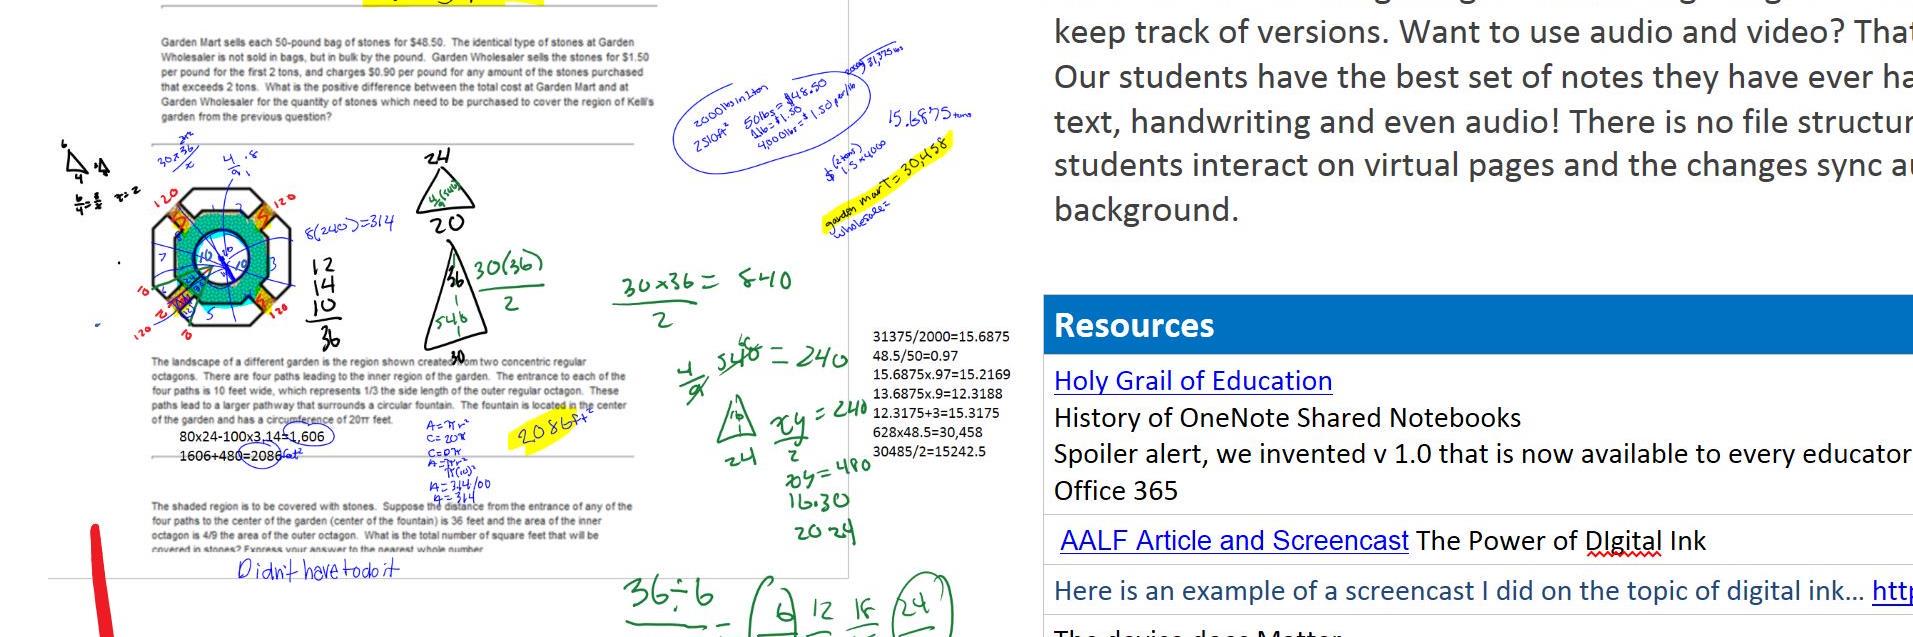 Garden Mart sells each 50-pound bag of stones for $48.50. The identical type of stones at Garden
Wholesaler is not sold in bags, but in bulk by the pound. Garden Wholesaler sells the stones for $1.50
per pound for the first 2 tons, and charges $0.90 per pound for any amount of the stones purchased
that exceeds 2 tons. What is the positive difference between the total cost at Garden Mart and at
Garden Wholesaler for the quantity of stones which need to be purchased to cover the region of Kelli's
garden from the previous question?
2000lbs in 1 ton
2510ft²
50lbs = $48.50
1lb = $1.50
4,000lbs = $1.50 per/lb
31,375 lbs
15.6875 tons
(2 tons)
$ 1.5 x 4000
garden mart = 30,458
wholesale =
6
4
30x36
4
9
.8
120
120
8(240)=314
7
3
5
10
120
120
12
14
10
36
24
20
36
546
30
30(36)
2
30x36 = 840
2
4
9
540 = 240
16
24
xy = 240
2
xy = 480
16.30
20 24
The landscape of a different garden is the region shown created from two concentric regular
octagons. There are four paths leading to the inner region of the garden. The entrance to each of the
four paths is 10 feet wide, which represents 1/3 the side length of the outer regular octagon. These
paths lead to a larger pathway that surrounds a circular fountain. The fountain is located in the center
of the garden and has a circumference of 20π feet.
80x24-100x3,14=1,606
1606+480=2086
2086ft²
A=πr²
C=20π
C=Dπ
A=πr²
π(10)²
A=3.14/00
A=314
31375/2000=15.6875
48.5/50=0.97
15.6875x.97=15.2169
13.6875x.9=12.3188
12.3175+3=15.3175
628x48.5=30,458
30485/2=15242.5
The shaded region is to be covered with stones. Suppose the distance from the entrance of any of the
four paths to the center of the garden (center of the fountain) is 36 feet and the area of the inner
octagon is 4/9 the area of the outer octagon. What is the total number of square feet that will be
covered in stones? Express your answer to the nearest whole number
Didn't have to do it
36÷6
=
6 12 18 24
keep track of versions. Want to use audio and video?
Our students have the best set of notes they have ever
text, handwriting and even audio! There is no file
students interact on virtual pages and the changes sync
background.
Resources
Holy Grail of Education
History of OneNote Shared Notebooks
Spoiler alert, we invented v 1.0 that is now available to every educator
Office 365
AALF Article and Screencast The Power of DIgital Ink
Here is an example of a screencast I did on the topic of digital ink... http
The device does Matter